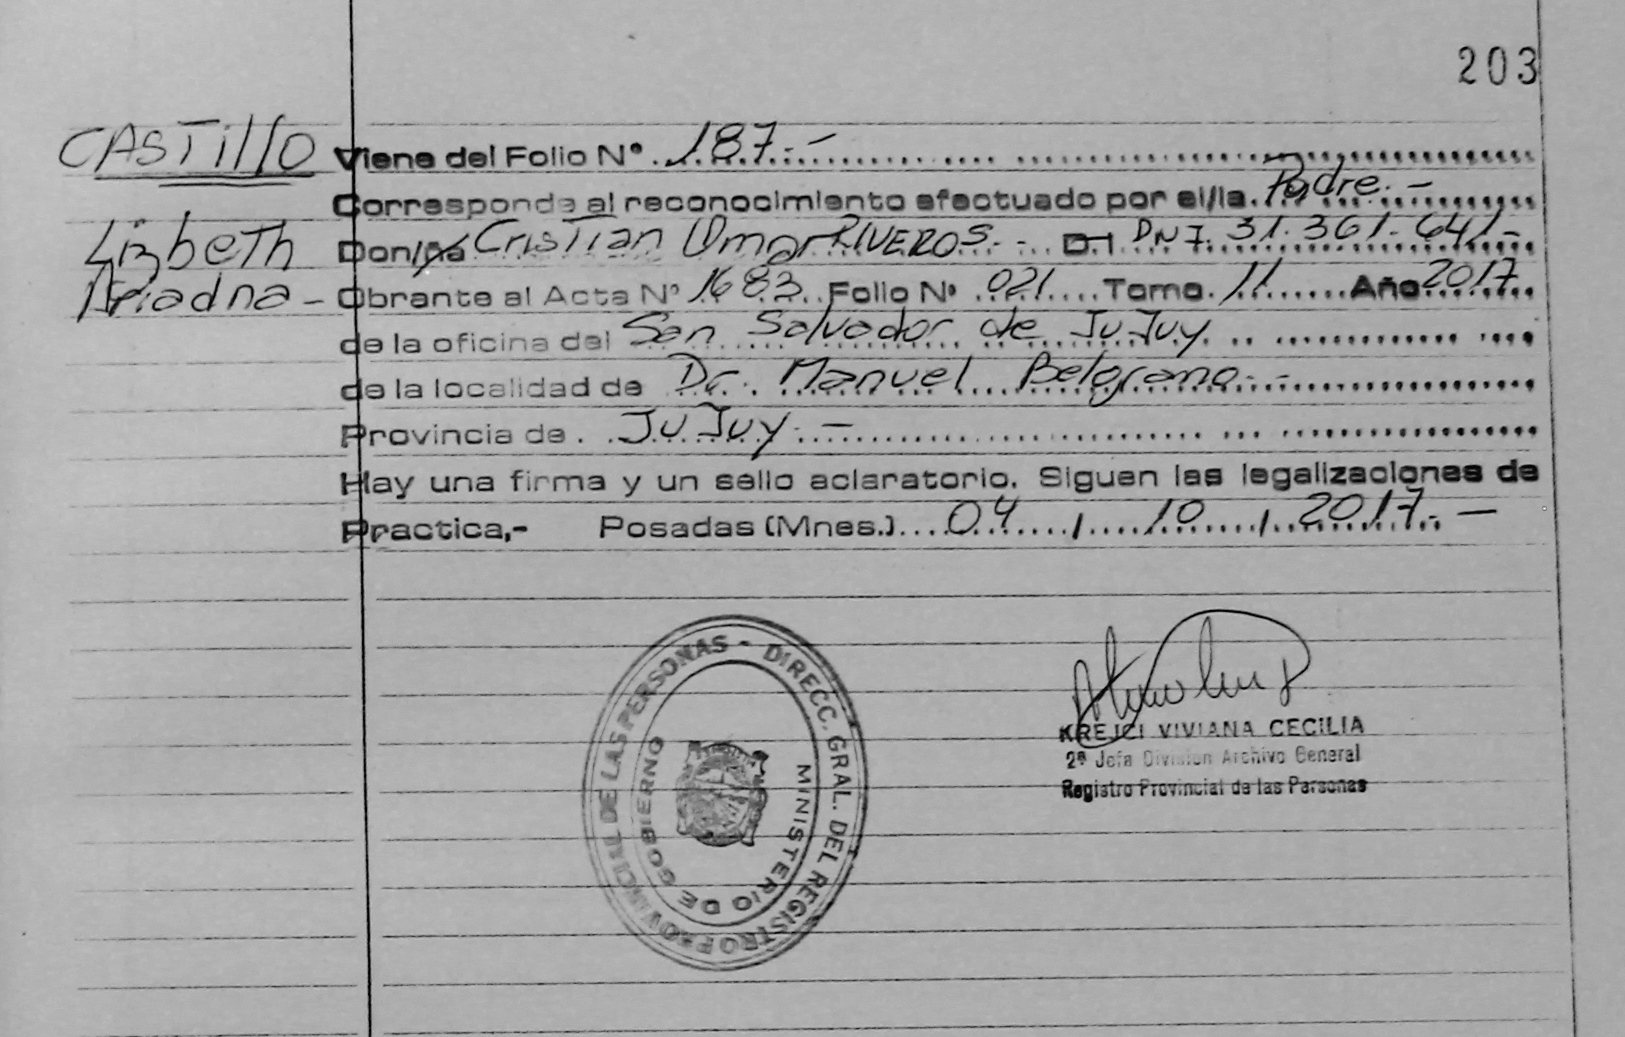 203
CASTillo
Viene del Folio N° 187.-
Corresponde al reconocimiento efectuado por el/la Padre.-
Lizbeth
Don/ña Cristian Omar RIVEROS.- D-I DN7. 31.361.641-
Ariadna -
Obrante al Acta N° 1683 Folio N° 021 Tomo 11 Año 2017
de la oficina del San Salvador de JuJuy
de la localidad de Dr. Manuel Belgrano.-
Provincia de JuJuy.-
Hay una firma y un sello aclaratorio. Siguen las legalizaciones de
Practica,- Posadas (Mnes.) 04 / 10 / 2017.-
DIRECC. GRAL. DEL REGISTRO PROVINCIAL DE LAS PERSONAS -
MINISTERIO DE GOBIERNO
KREJCI VIVIANA CECILIA
2ª Jefa Division Archivo General
Registro Provincial de las Personas